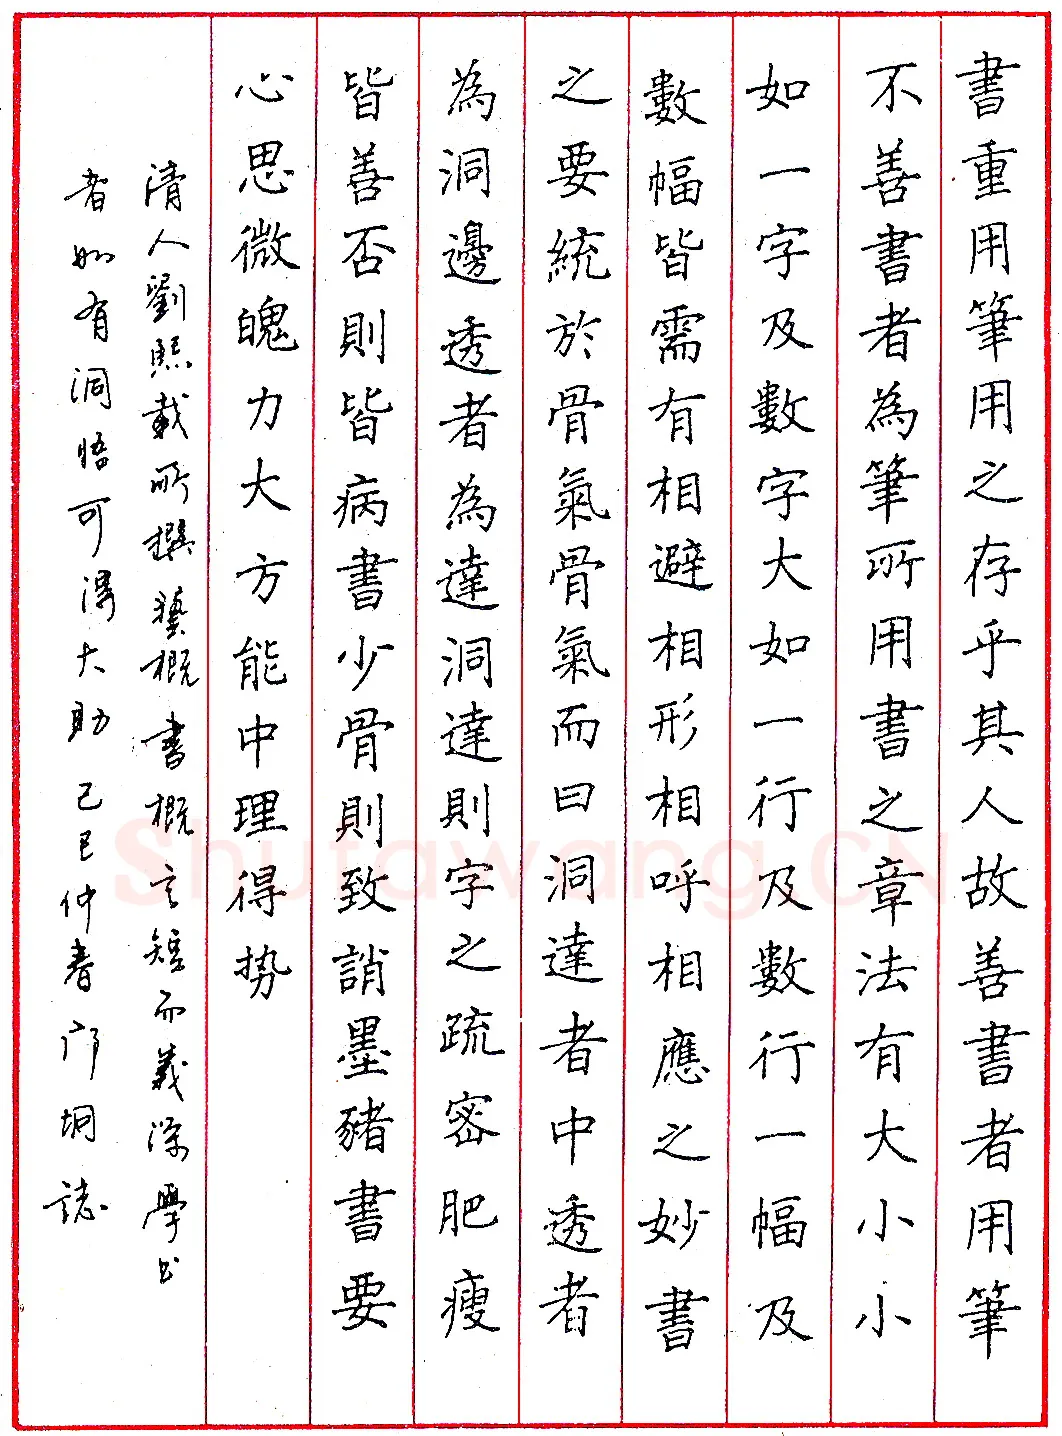 書重用筆用之存乎其人故善書者用筆
不善書者為筆所用書之章法有大小小
如一字及數字大如一行及數行一幅及
數幅皆需有相避相形相呼相應之妙書
之要統於骨氣骨氣而曰洞達者中透者
為洞邊透者為達洞達則字之疏密肥瘦
皆善否則皆病書少骨則致誚墨豬書要
心思微魄力大方能中理得势
清人劉熙載所撰藝概書概言短而義深學书
者如有洞悟可得大助己巳仲春 垌誌
Shufawang.CN